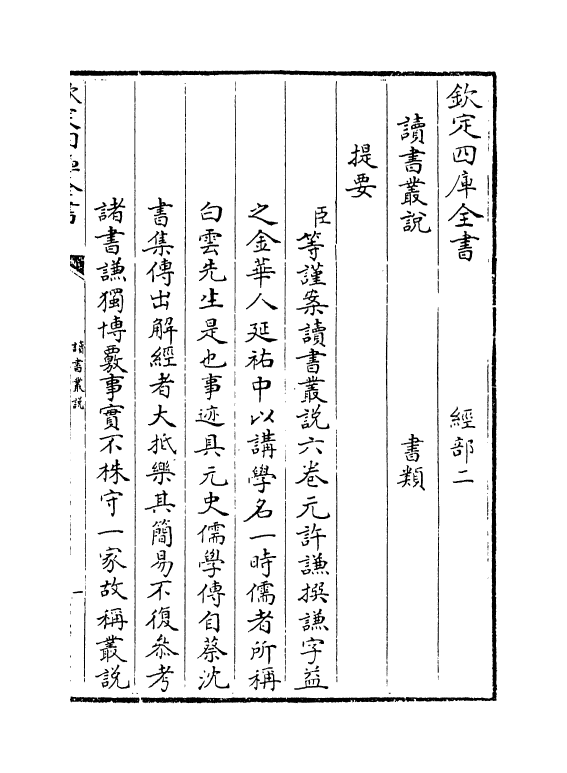 欽定四庫全書　經部二
讀書叢說　書類
提要
臣等謹案讀書叢說六卷元許謙撰謙字益
之金華人延祐中以講學名一時儒者所稱
白雲先生是也事迹具元史儒學傳自蔡沈
書集傳出解經者大抵樂其簡易不復叅考
諸書謙獨博覈事實不株守一家故稱叢說
欽定四庫全書
讀書叢說
一